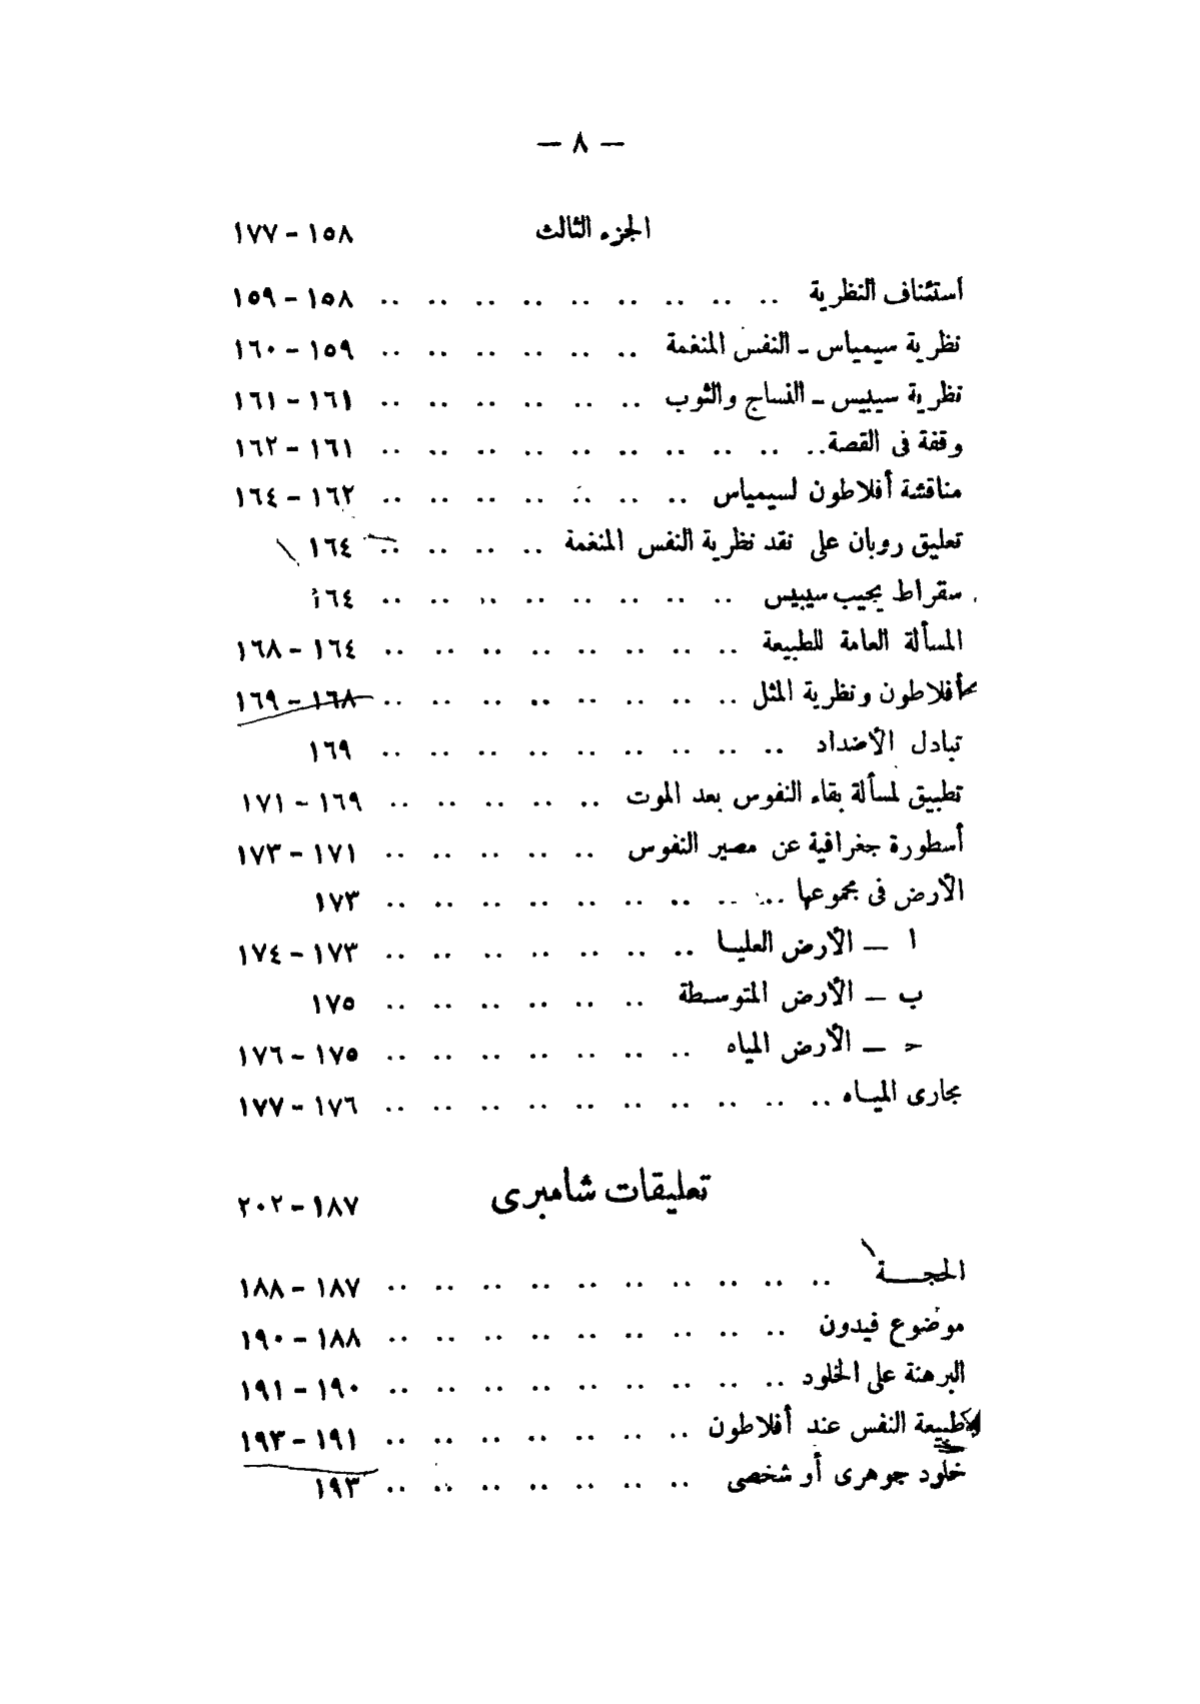 — ٨ —
الجزء الثالث ١٥٨ – ١٧٧
استئناف النظرية .. .. .. .. .. .. .. .. .. ١٥٨ – ١٥٩
نظرية سيمياس – النفس المنغمة .. .. .. .. .. .. ١٥٩ – ١٦٠
نظرية سيبيس – النساج والثوب .. .. .. .. .. .. ١٦١ – ١٦١
وقفة فى القصة .. .. .. .. .. .. .. .. .. .. ١٦١ – ١٦٢
مناقشة أفلاطون لسيمياس .. .. .. .. .. .. .. ١٦٢ – ١٦٤
تعليق روبان على نقد نظرية النفس المنغمة .. .. .. .. ١٦٤
سقراط يجيب سيبيس .. .. .. .. .. .. .. .. ١٦٤
المسألة العامة للطبيعة .. .. .. .. .. .. .. .. ١٦٤ – ١٦٨
أفلاطون ونظرية المثل .. .. .. .. .. .. .. .. ١٦٨ – ١٦٩
تبادل الأضداد .. .. .. .. .. .. .. .. .. ١٦٩
تطبيق لمسألة بقاء النفوس بعد الموت .. .. .. .. .. ١٦٩ – ١٧١
أسطورة جغرافية عن مصير النفوس .. .. .. .. .. ١٧١ – ١٧٣
الأرض فى مجموعها .. .. .. .. .. .. .. .. .. ١٧٣
ا — الأرض العليا .. .. .. .. .. .. .. ١٧٣ – ١٧٤
ب — الأرض المتوسطة .. .. .. .. .. .. ١٧٥
ح — الأرض المياه .. .. .. .. .. .. .. ١٧٥ – ١٧٦
مجارى الميـاه .. .. .. .. .. .. .. .. .. .. ١٧٦ – ١٧٧
تعليقات شامبرى ١٨٧ – ٢٠٢
الحجـــة .. .. .. .. .. .. .. .. .. .. ١٨٧ – ١٨٨
موضوع فيدون .. .. .. .. .. .. .. .. .. ١٨٨ – ١٩٠
البرهنة على الخلود .. .. .. .. .. .. .. .. .. ١٩٠ – ١٩١
طبيعة النفس عند أفلاطون .. .. .. .. .. .. .. ١٩١ – ١٩٣
خلود جوهرى أو شخصى .. .. .. .. .. .. .. ١٩٣